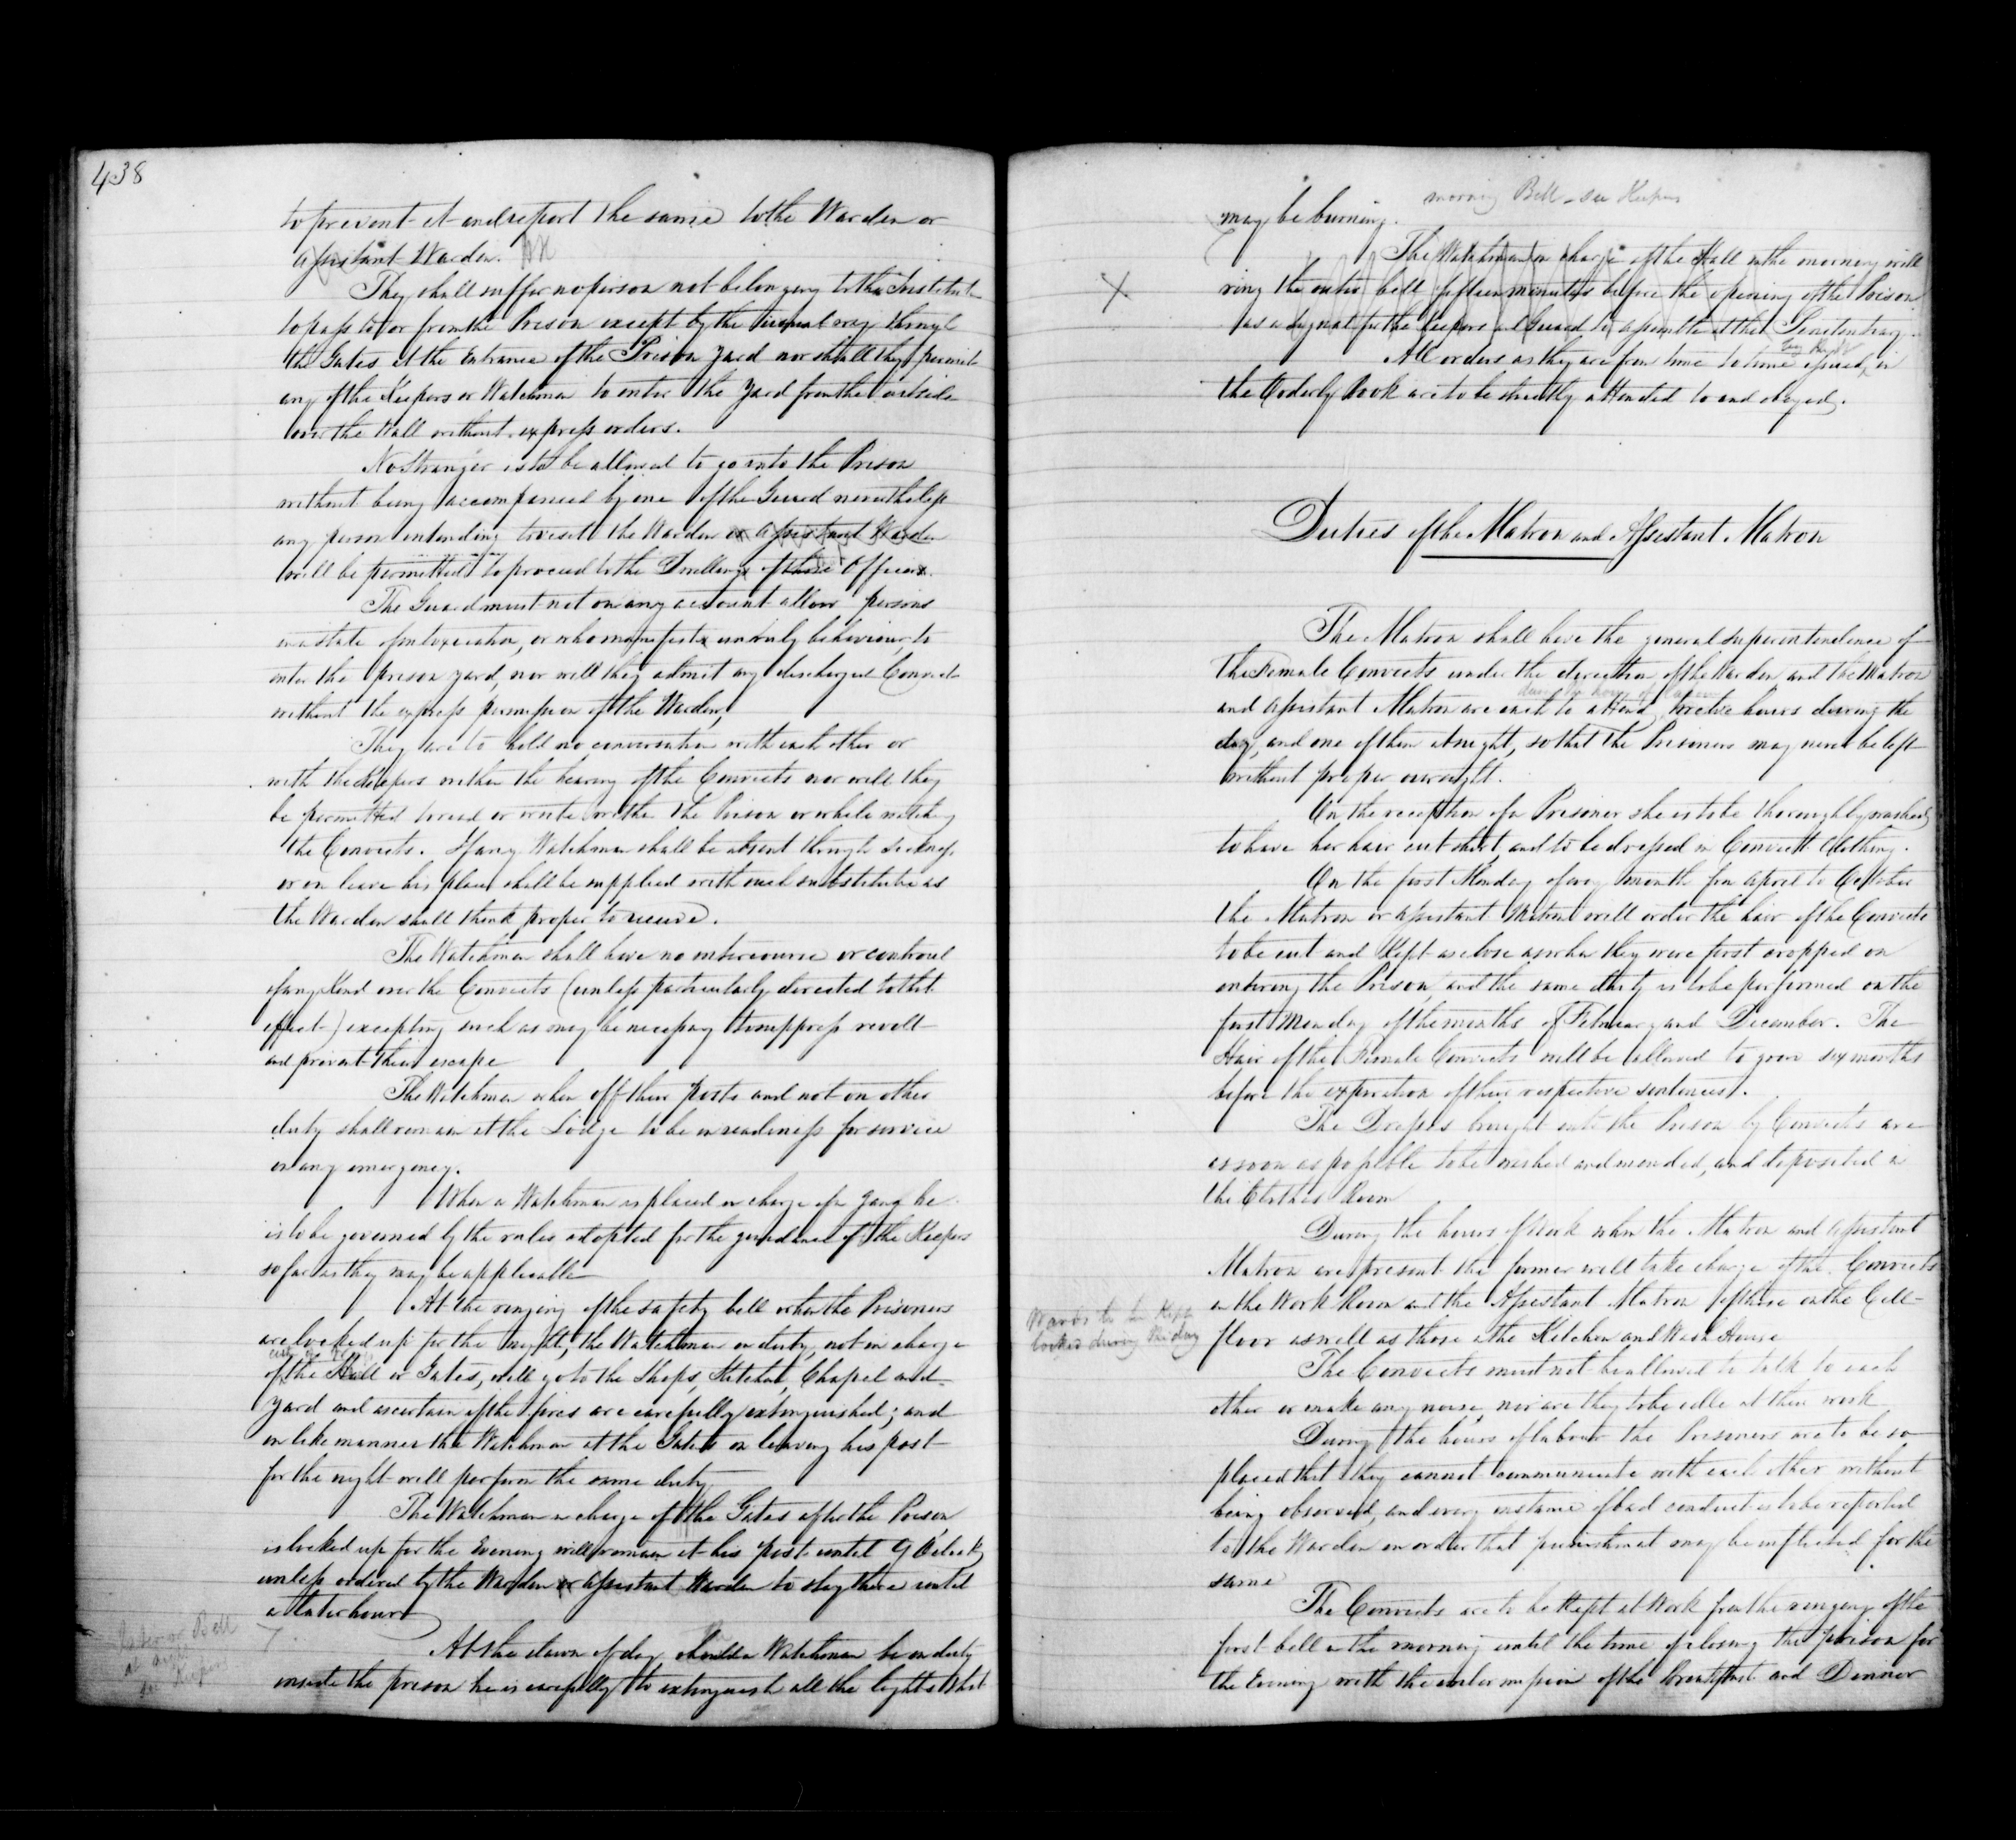 438
to prevent it and report the same to the Warden or
assistant Warden.
They shall suffer no person not belonging to the Institute
to pass to or from the Prison except by the usual way through
the Gates at the Entrance of the Prison Yard nor shall they permit
any of the Keepers or Watchmen to enter the Yard from the outside
over the Wall without express orders.
No Stranger is to be allowed to go into the Prison
without being accompanied by one of the Guard nevertheless
any person intending to visit the Warden or Assistant Warden
will be permitted to proceed to the Dwellings of these Officers.
The Guard must not on any account allow persons
in a state of intoxication, or who manifests unruly behaviour, to
enter the prison yard, nor will they admit any discharged Convict
without the express permission of the Warden,
They are to hold no conversation with each other or
with the Keepers within the hearing of the Convicts nor will they
be permitted to read or write within the Prison or while watching
the Convicts. If any Watchman shall be absent through sickness
or on leave his place shall be supplied with such substitute as
the Warden shall think proper to receive.
The Watchmen shall have no intercourse or controul
of any Kind over the Convicts (unless particularly directed to that
effect) excepting such as may be necessary to suppress revolt
and prevent their escape
The Watchmen when off their posts and not on other
duty shall remain at the Lodge to be in readiness for service
on any emergency.
When a Watchman is placed in charge of a gang he
is to be governed by the rules adopted for the guidance of the Keepers
so far as they may be applicable
At the ringing of the safety bell when the Prisoners
are locked up for the night, the Watchmen on duty, not in charge
of the Hall or Gates, will go to the Shops, Kitchen, Chapel and
Yard and ascertain if the fires are carefully extinguished; and
in like manner the Watchman at the Gates on leaving his post
for the night will perform the same duty
The Watchman in charge of the Gates after the Prison
is locked up for the Evening will remain at his post until 9 Oclock,
unless ordered by the Warden or Assistant Warden to stay there until
a later hour
Bell
at night
see Keepers
At the dawn of day should a Watchman be on duty
inside the prison he is carefully to extinguish all the lights that
morning Bell - see Keepers
may be burning.
The Watchman in charge of the Hall in the morning will
X
ring the outer bell fifteen minutes before the opening of the Prison
as a signal for the Keepers and Guard to assemble at the Penitentiary.
All orders as they are from time to time issued, in
the Orderly Book are to be strictly attended to and obeyed.
Duties of the Matron and Assistant Matron
The Matron shall have the general superintendence of
the Female Convicts under the direction of the Warden and the Matron
during the hours of labour
and Assistant Matron are each to attend twelve hours during the
day, and one of them at night, so that the Prisoners may never be left
without proper oversight.
On the reception of a Prisoner she is to be thoroughly washed,
to have her hair cut short, and to be dressed in Convict Clothing.
On the first Monday of every month from April to October
the Matron or Assistant Matron will order the hair of the Convicts
to be cut and Kept as close as when they were first cropped on
entering the Prison, and the same duty is to be performed on the
first Monday of the months of February and December. The
Hair of the Female Convicts will be allowed to grow six months
before the expiration of their respective sentences.
The Dresses brought into the Prison by Convicts are
as soon as possible to be washed and mended, and deposited in
the Clothes Room
During the hours of Work when the Matron and Assistant
Matron are present the former will take charge of the Convicts
in the Work Room and the Assistant Matron of those in the Cell
Wards to be Kept
locked during the day
floor as well as those in the Kitchen and Wash House
The Convicts must not be allowed to talk to each
other or make any noise, nor are they to be idle at their work
During the hours of labour the Prisoners are to be so
placed that they cannot communicate with each other without
being observed, and every instance of bad conduct is to be reported
to the Warden in order that punishment may be inflicted for the
same
The Convicts are to be Kept at Work from the ringing of the
first bell in the morning until the time of closing the prison for
the Evening with the intermission of the breakfast and Dinner